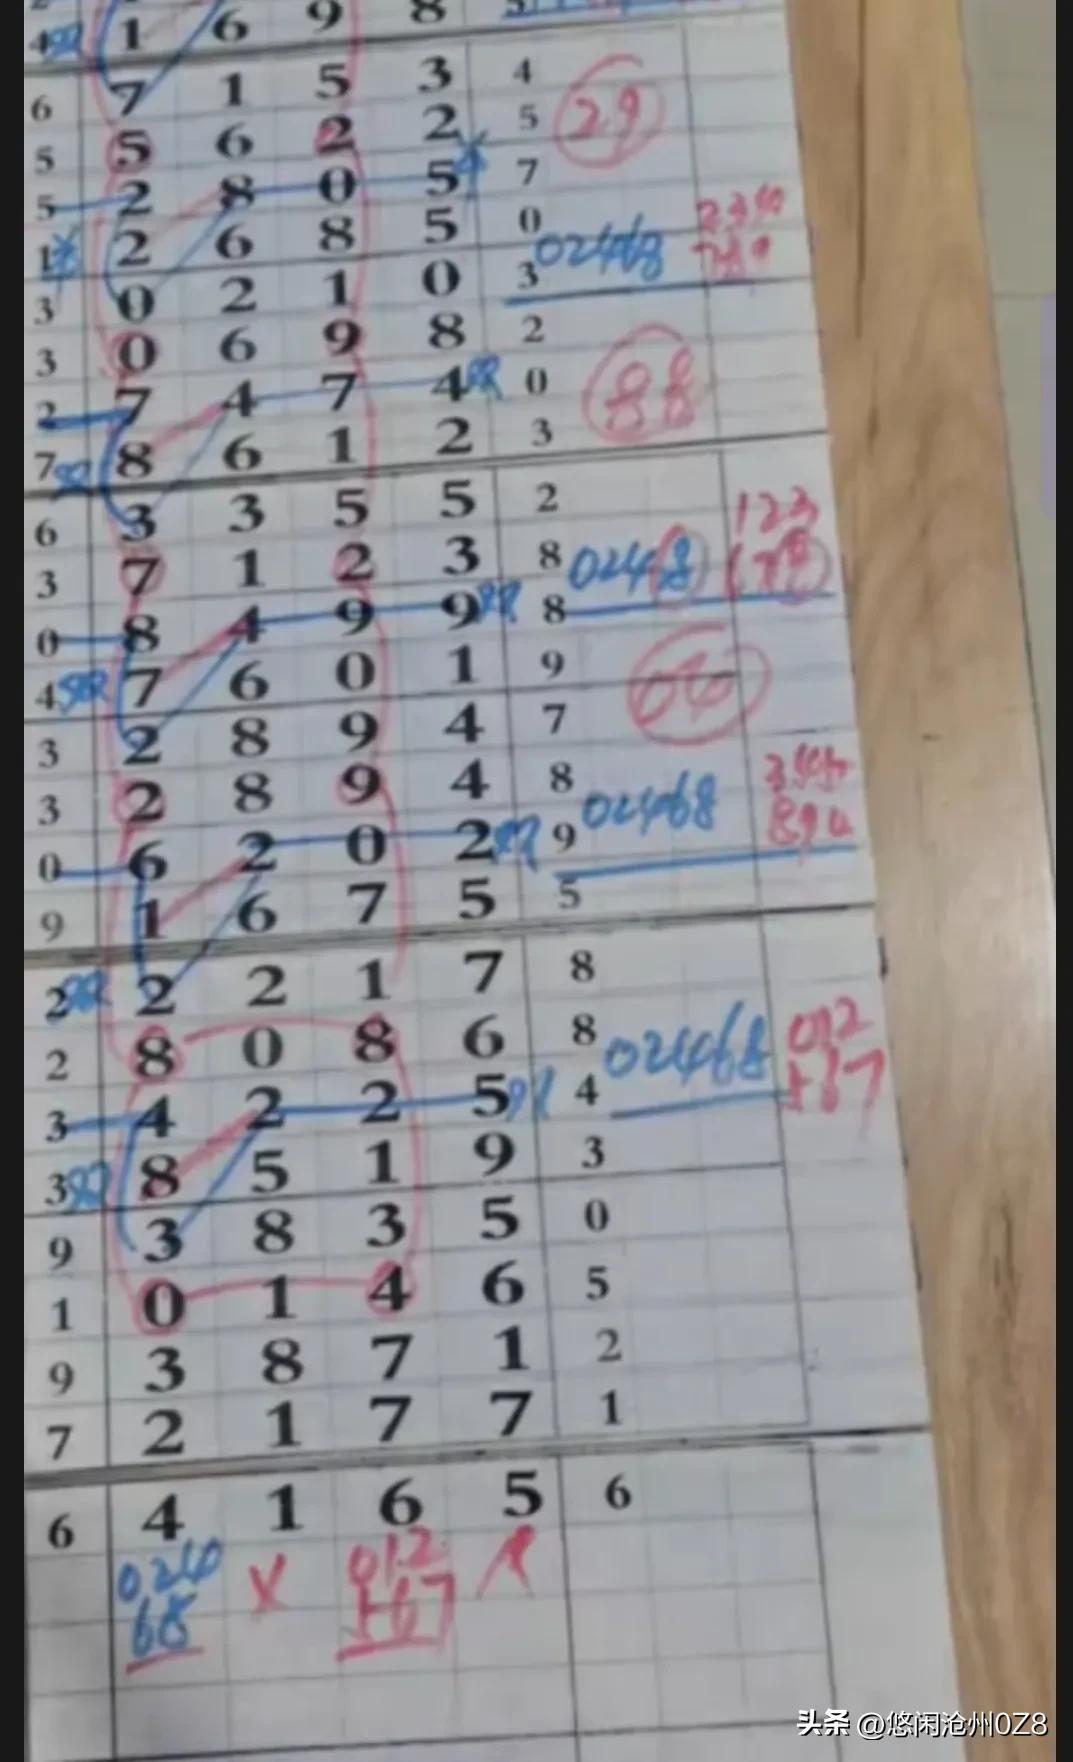 4 1 6 9 8
6 7 1 5 3 4 29
5 5 6 2 2 5
5 2 8 0 5 7
1 2 6 8 5 0 02468 234
3 0 2 1 0 3 789
3 0 6 9 8 2
2 7 4 7 4 0 88
7 8 6 1 2 3
6 3 3 5 5 2 123
3 7 1 2 3 8 02468 678
0 8 4 9 9 8
4 7 6 0 1 9
3 2 8 9 4 7
3 2 8 9 4 8 02468 345
0 6 2 0 2 9 890
9 1 6 7 5 5
2 2 2 1 7 8
2 8 0 8 6 8 02468 012
3 4 2 2 5 4 567
3 8 5 1 9 3
9 3 8 3 5 0
1 0 1 4 6 5
9 3 8 7 1 2
7 2 1 7 7 1
6 4 1 6 5 6
024 X 012
68 567
头条 @悠闲沧州0Z8